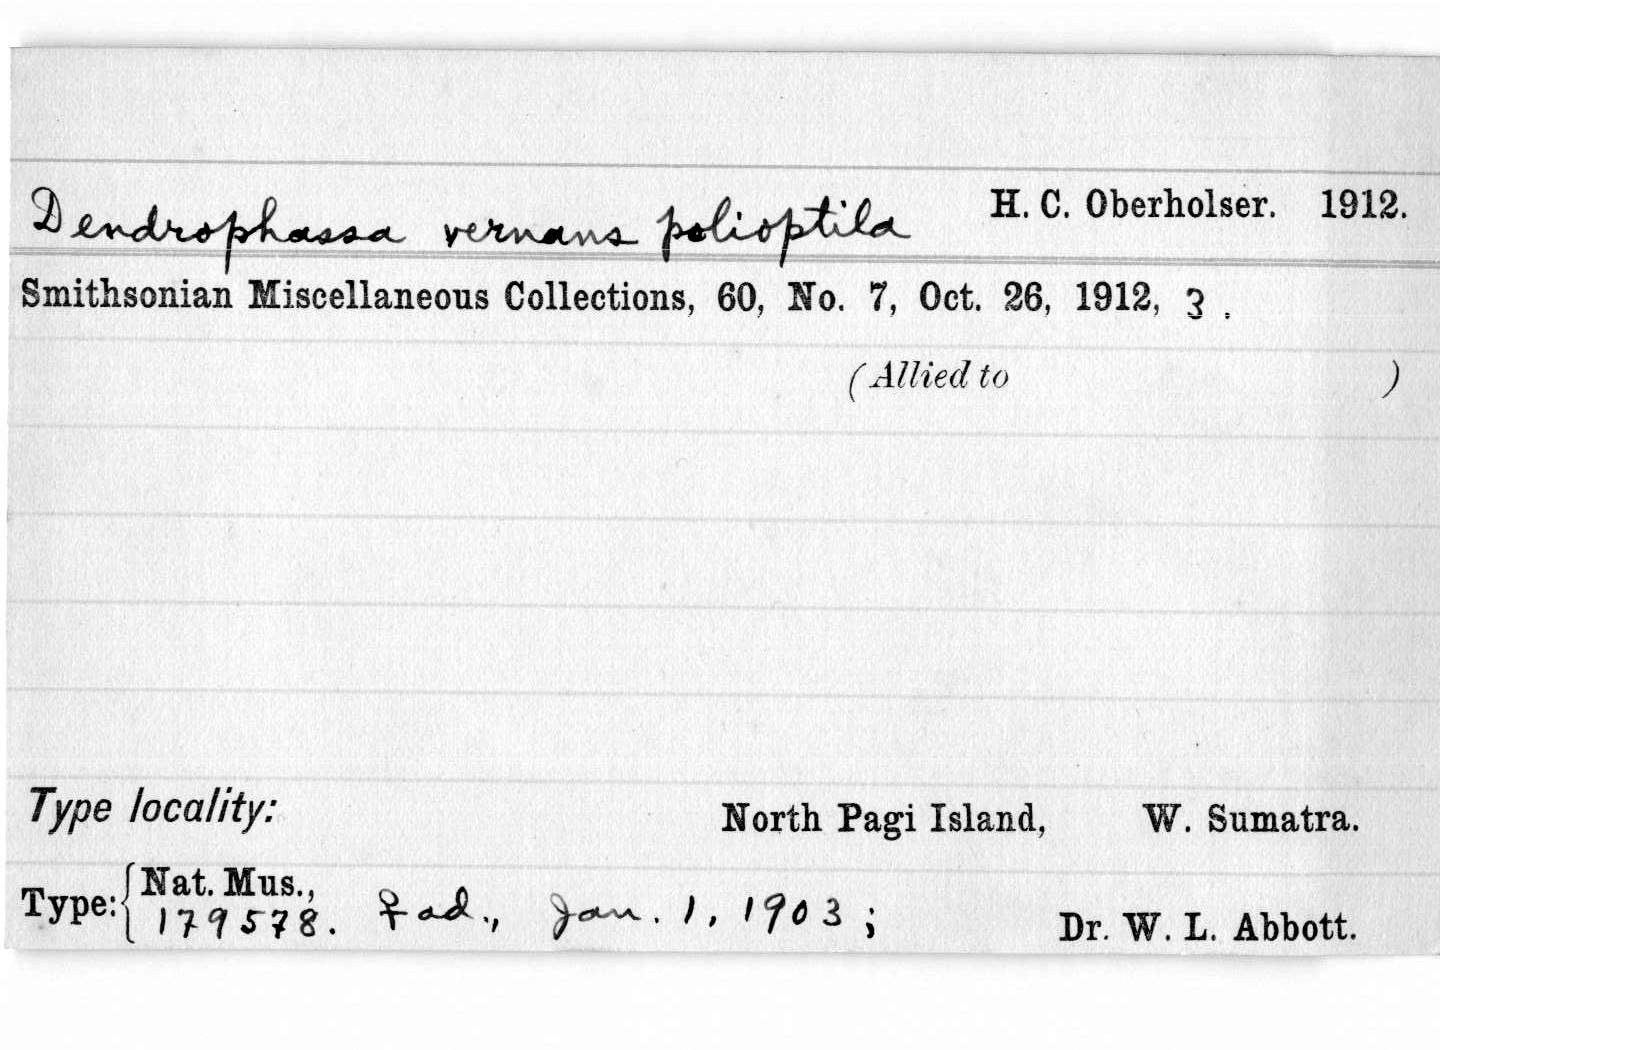 Dendrophassa vernans polioptila H. C. Oberholser. 1912.
Smithsonian Miscellaneous Collections, 60, No. 7, Oct. 26, 1912, 3.
(Allied to )
Type locality: North Pagi Island, W. Sumatra.
Type: { Nat. Mus.,
179578. ♀ ad., Jan. 1, 1903; Dr. W. L. Abbott.